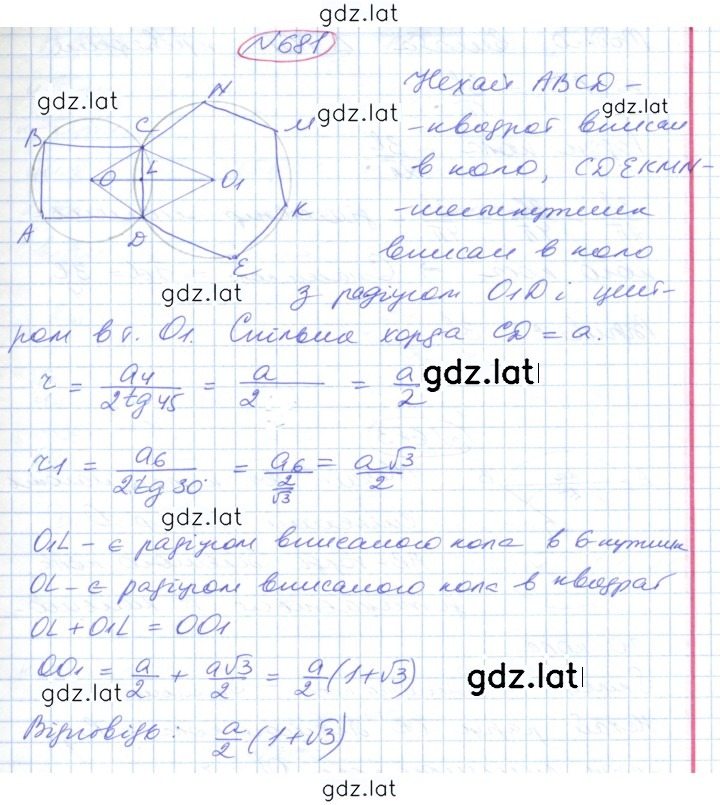 gdz.lat
N681
Нехай ABCD -
gdz.lat
gdz.lat
gdz.lat
- квадрат вписан
в коло, CDEKMN -
- шестикутник
вписан в коло
B C N M
O L O1
A D E K
gdz.lat
з радіусом O1D і цент-
ром в т. O1. Спільна хорда CD = a.
r = a4 / 2tg45 = a / 2 = a / 2
gdz.lat
r1 = a6 / 2tg30° = a6 / (2/√3) = a√3 / 2
gdz.lat
O1L - є радіусом вписаного кола в 6-кутник
OL - є радіусом вписаного кола в квадрат
OL + O1L = OO1
OO1 = a/2 + a√3/2 = a/2 (1+√3)
gdz.lat
gdz.lat
Відповідь: a/2 (1+√3)
gdz.lat